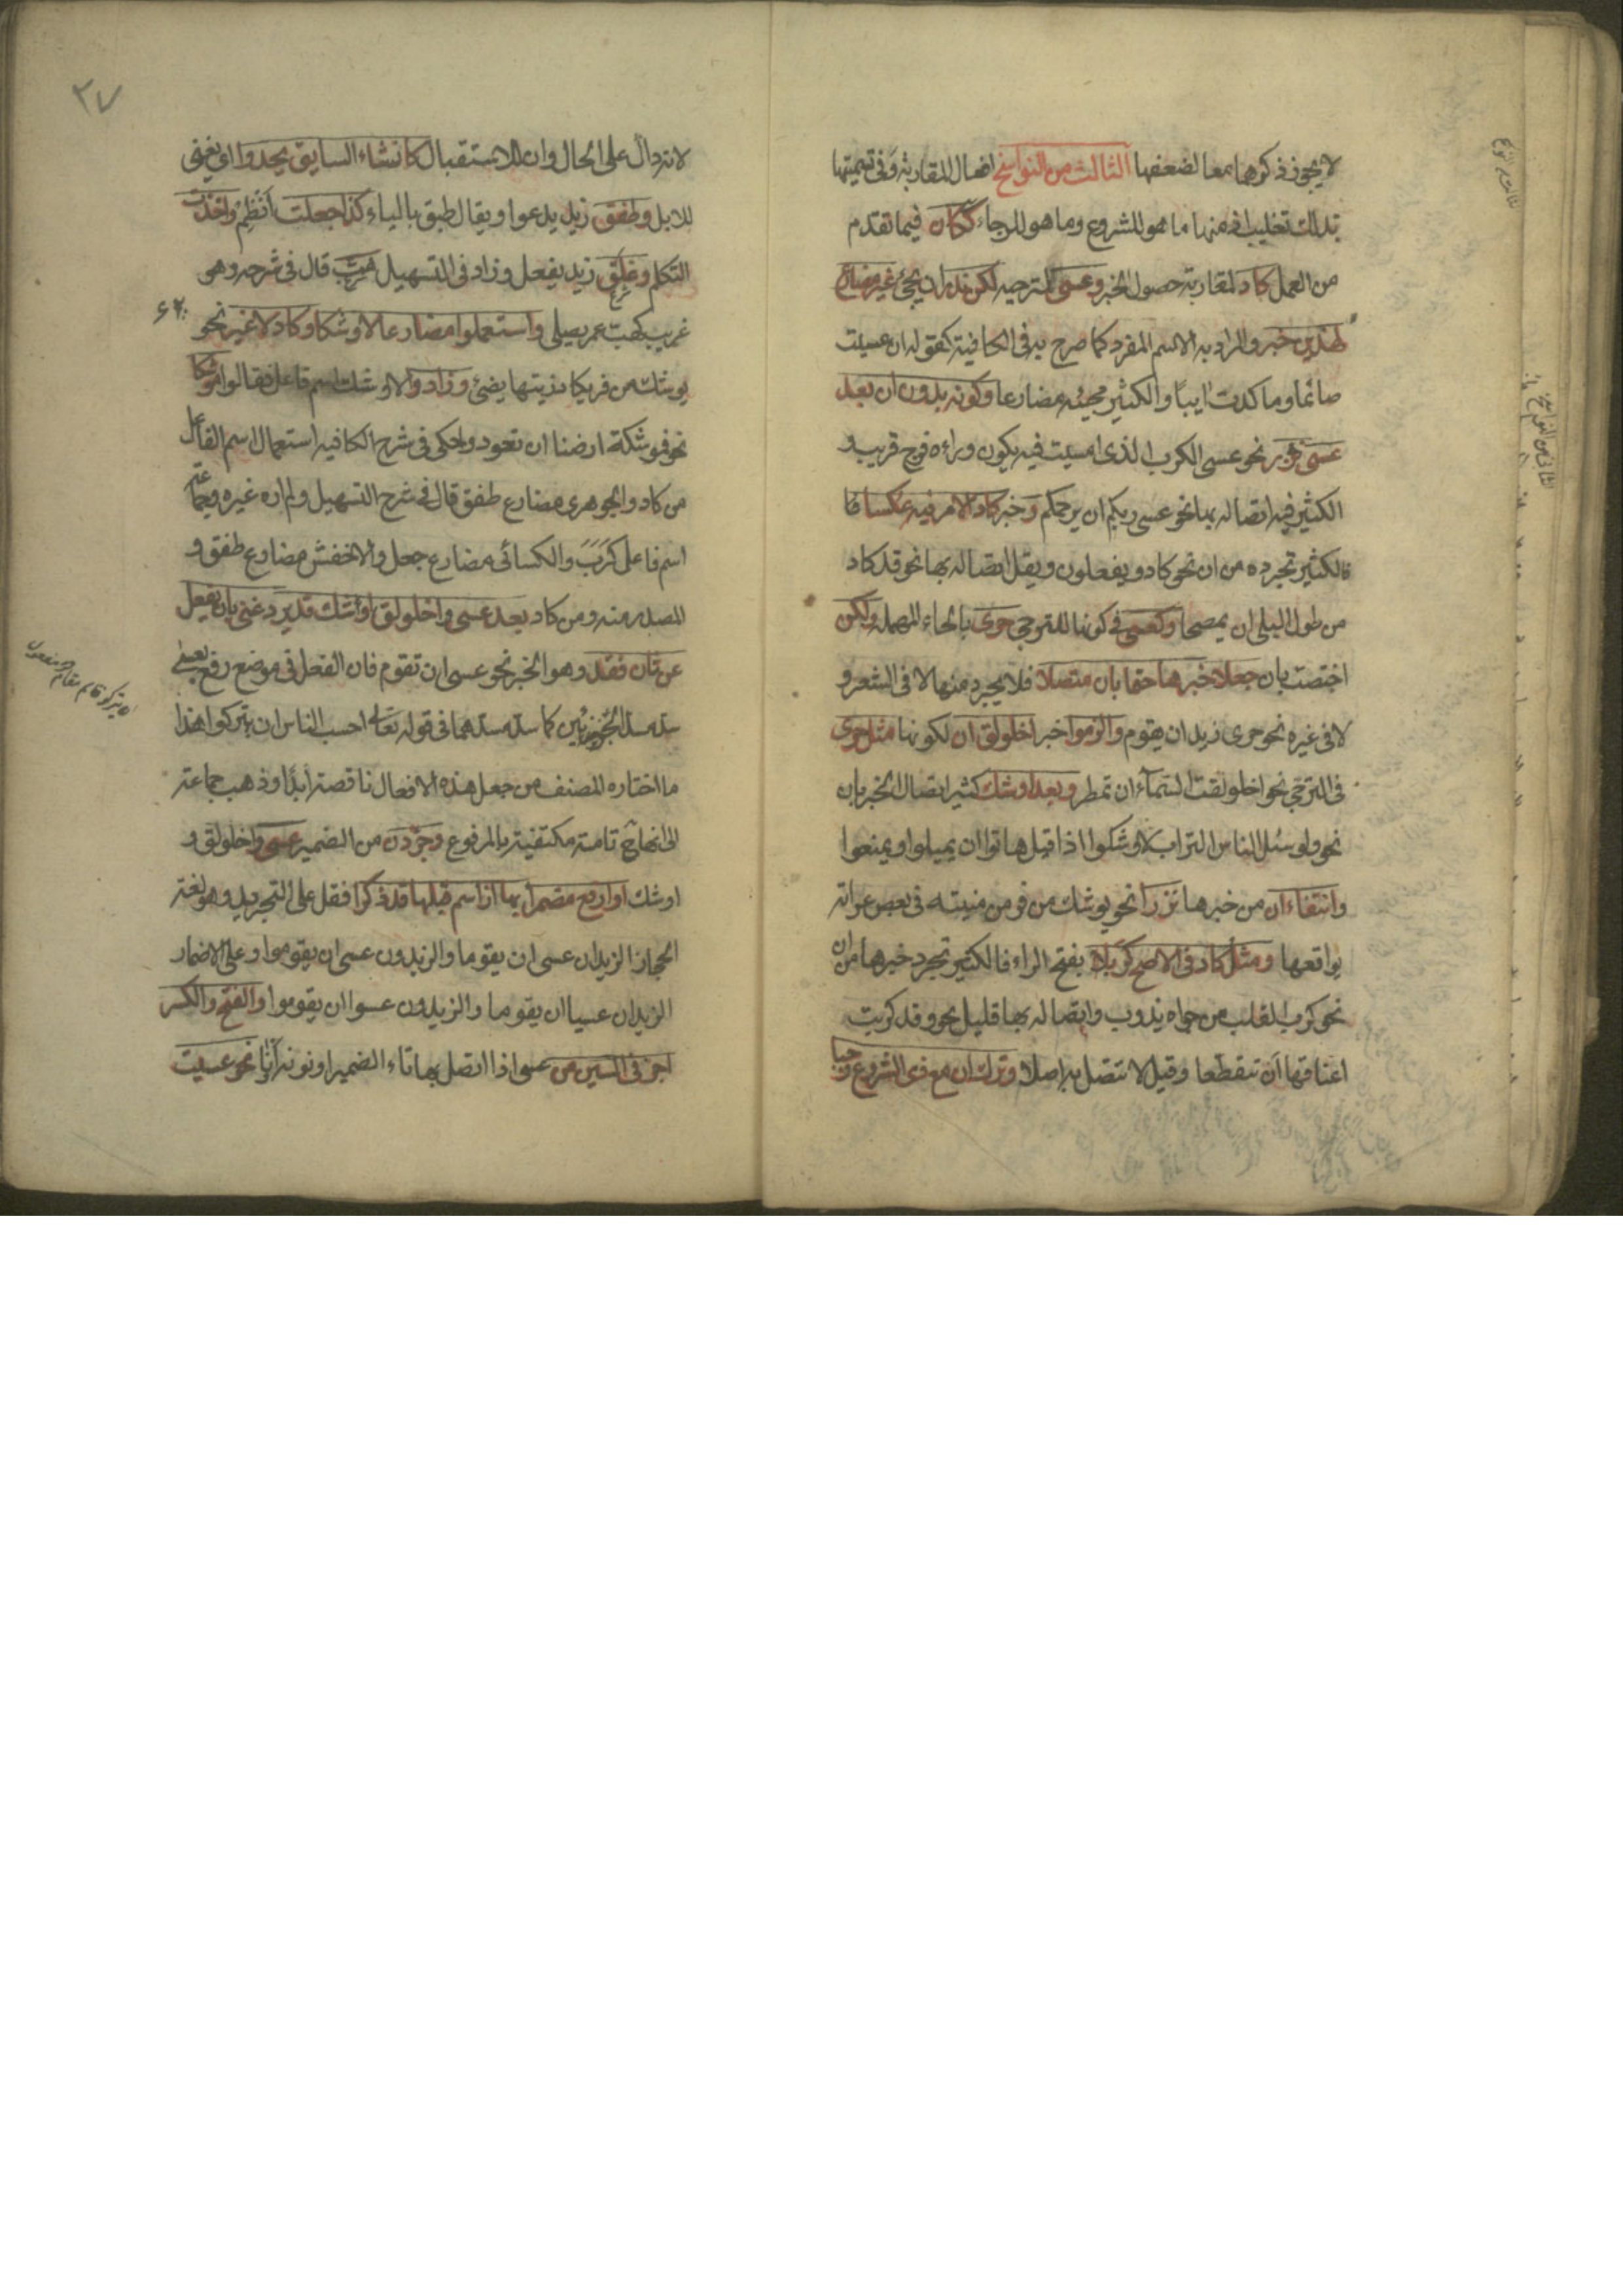 لا يجوز ذكرهما معا لضعفها الثالث من النواسخ افعال المقاربة وفى تسميتها
بذلك تغليب اذ منها ما هو للشروع وما هو للرجاء ككان فيما تقدم
من العمل كاد لمقاربة حصول الخبر وعسى لترجيه لكن ندر ان يجئ غير مضارع
لهذين خبر والمراد به الاسم المفرد كما صرح به فى الكافية كقوله انى عسيت
صائما وما كدت ايبا والكثير مجيئه مضارعا وكونه بدون ان بعد
عسى نزر نحو عسى الكرب الذى امسيت فيه يكون وراءه فرج قريب و
الكثير فيه اتصاله بها نحو عسى ربكم ان يرحمكم وخبر كاد الامر فيه عكسا فا
فالكثير تجرده من ان نحو كادو يفعلون ويقل اتصاله بها نحو قد كاد
من طول البلى ان يمصحا وكعسى فى كونها للترجى حرى بالحاء المهملة ولكن
اختصت بان جعلا خبرها حتما بان متصلا فلا يجرد منها لا فى الشعر و
لا فى غيره نحو حرى زيد ان يقوم والزموا خبر اخلولق ان لكونها مثل حرى
فى الترجى نحو اخلولقت السماء ان تمطر وبعد اوشك كثير اتصال الخبر بان
نحو ولو سئل الناس التراب لاوشكوا اذا قيل هاتوا ان يميلوا ويمنعوا
وانتفاء ان من خبرها نزرا نحو يوشك من فر من منيته فى بعض غراته
يواقعها ومثل كاد فى الاصح كربا بفتح الراء فالكثير تجرد خبرها من ان
نحو كرب القلب من جواه يذوب واتصاله بها قليل نحو وقد كربت
اعناقها ان تقطعا وقيل لا تتصل به اصلا وترك ان مع ذى الشروع وجبا
٢٧
لانه دال على الحال وان للاستقبال كانشاء السايق يحدوا اى يغنى
للابل وطفق زيد يدعوا ويقال طبق بالباء كذا جعلت انظم واخذت
اتكلم وعلق زيد يفعل وزاد فى التسهيل هب قال فى شرحه وهو
غريب كهب عمر يصلى واستعملوا مضارعا لاوشكا وكاد لا غير نحو
يوشك من فر يكا دزيتها يضئ وزادوا لاوشك اسم فاعل فقالوا موشكا
نحو فموشكة ارضنا ان تعود وحكى فى شرح الكافيه استعمال اسم الفاعل
من كاد والجوهرى مضارع طفق قال فى شرح التسهيل ولم اره غيره وجماعة
اسم فاعل كرب والكسائى مضارع جعل والاخفش مضارع طفق و
المصدر منه ومن كاد بعد عسى واخلولق اوشك قد يرد غنى بان يفعل
عن ثان فقد وهو الخبر نحو عسى ان تقوم فان الفعل فى موضع رفع بعسى
سد مسد الجزئين كما سد مسدهما فى قوله تعالى احسب الناس ان يتركوا هذا
ما اختاره المصنف من جعل هذه الافعال ناقصة ابدا وذهب جماعة
الى انها ح تامة مكتفية بالمرفوع وجردن من الضمير عسى واخلولق و
اوشك اوارفع مضمرا بها اذا اسم قبلها قد ذكرا فقل على التجريد وهو لغة
الحجاز الزيدان عسى ان يقوما والزيدون عسى ان يقوموا وعلى الاضمار
الزيدان عسيا ان يقوما والزيدون عسوا ان يقوموا والفتح والكسر
اجز فى السين من عسى اذا اتصل بها تاء الضمير او نونه او نا نحو عسيت